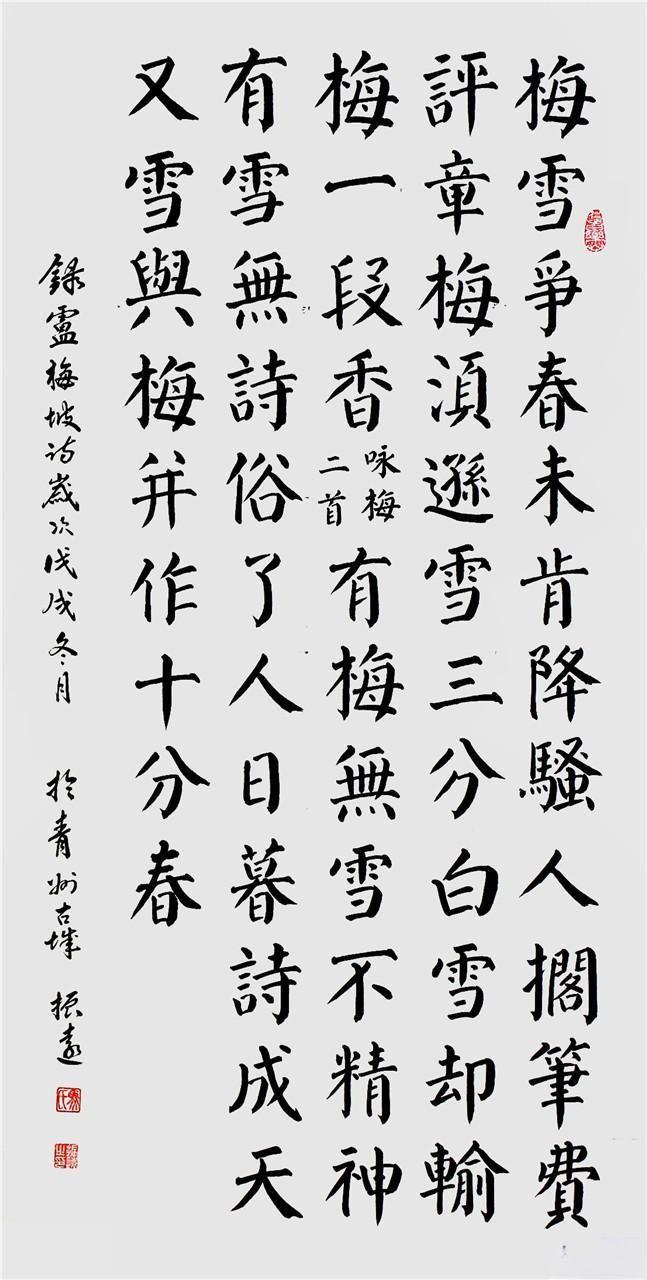 梅雪爭春未肯降騷人擱筆費
評章梅湏遜雪三分白雪却輸
梅一段香
咏梅
二首
有梅無雪不精神
有雪無詩俗了人日暮詩成天
又雪與梅并作十分春
録盧梅坡诗歲次戊戌冬月
於青州古城 振遠